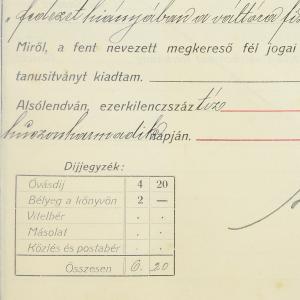 „fedezet hiányában a váltóra fi
Miről, a fent nevezett megkereső fél jogai
tanusitványt kiadtam.
Alsólendván, ezerkilenczszáz tiz
huszonharmadik napján.
Dijjegyzék:
Óvásdij 4 20
Bélyeg a könyvön 2 —
Vitelbér . .
Másolat . .
Közlés és postabér . .
Összesen 6. 20